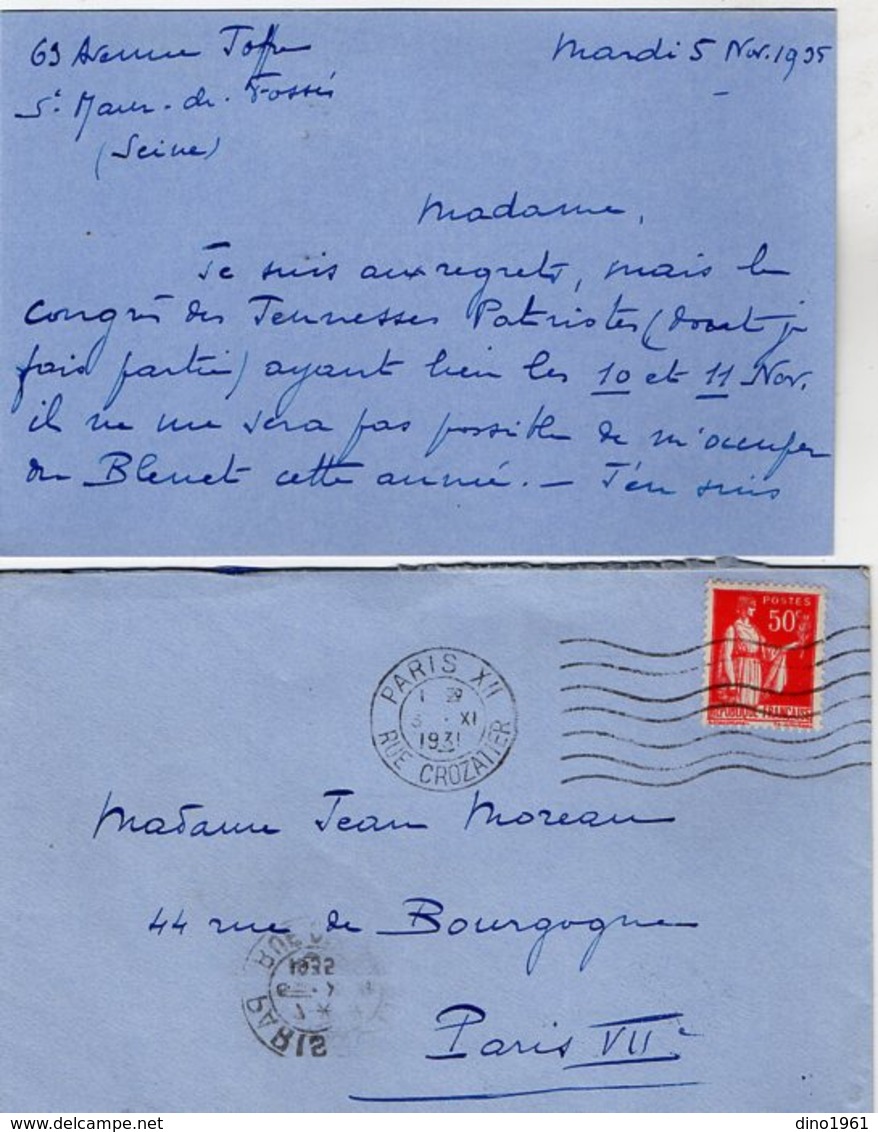 69 Avenue Joffre
St Maur-des-Fossés
(Seine)
Mardi 5 Nov. 1935
Madame,
Je suis aux regrets, mais le
congrès des Jeunesses Patriotes (dont je
fais partie) ayant lieu les 10 et 11 Nov.
il ne me sera pas possible de m'occuper
du Bleuet cette année. — J'en suis
POSTES
50c
REPUBLIQUE FRANÇAISE
PARIS XII
XI
193
RUE CROZATIER
Madame Jean Moreau
44 rue de Bourgogne
Paris VIIe
PARIS
RUE
dino1961